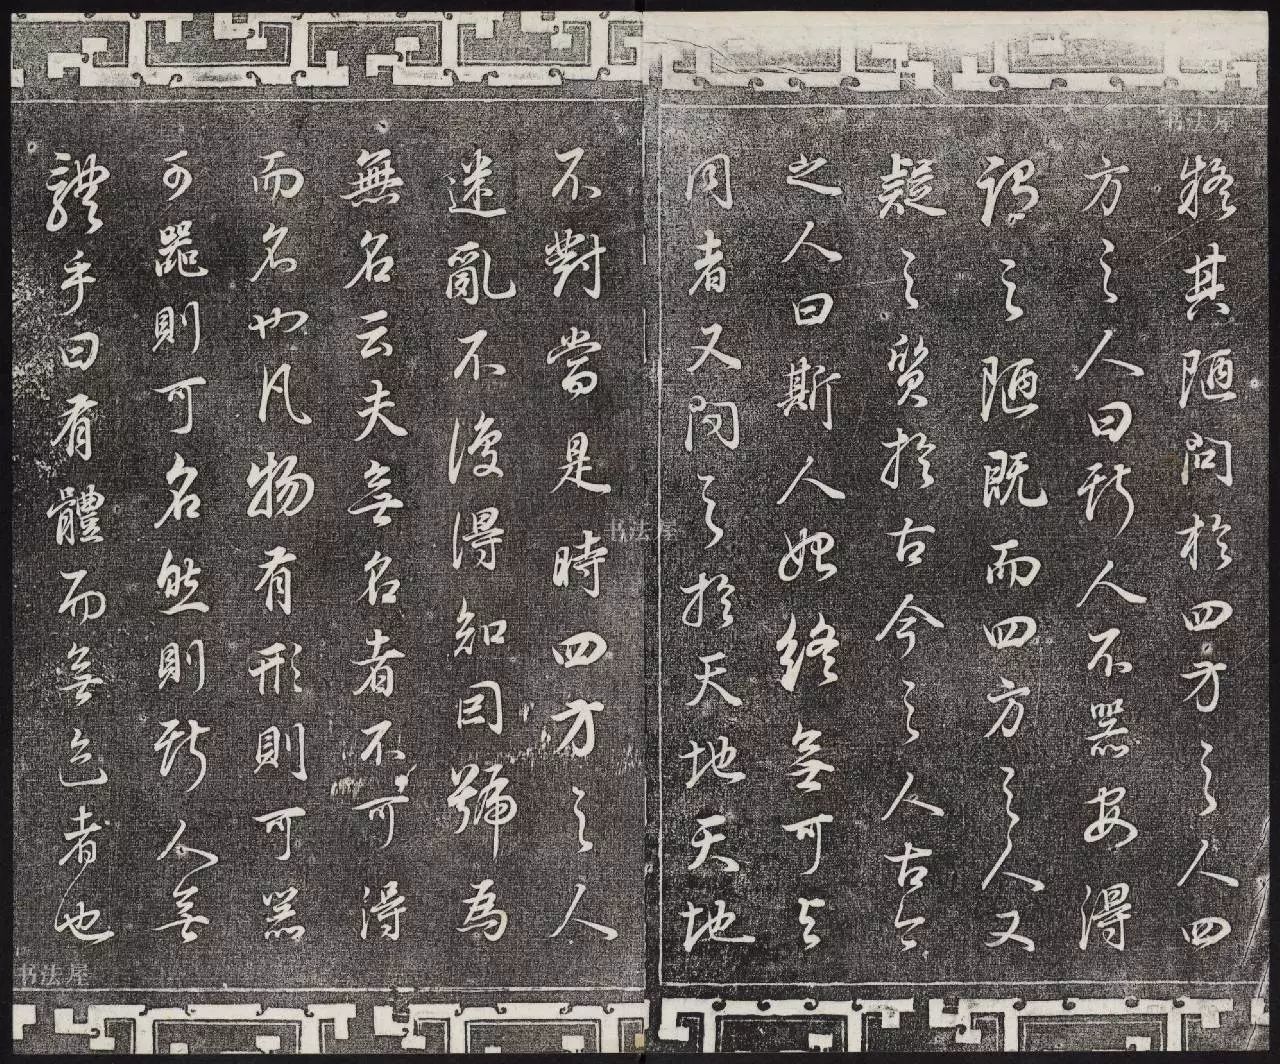 疑其陋問於四方之人四
方之人曰斯人不器安得
謂之陋既而四方之人又
疑之質於古今之人古今
之人曰斯人始終無可與
同者又問之於天地天地
不對當是時四方之人
迷亂不復得知因號為
無名云夫無名者不可得
而名也凡物有形則可器
可器則可名然則斯人無
體乎曰有體而無迹者也
书法屋
书法屋
书法屋